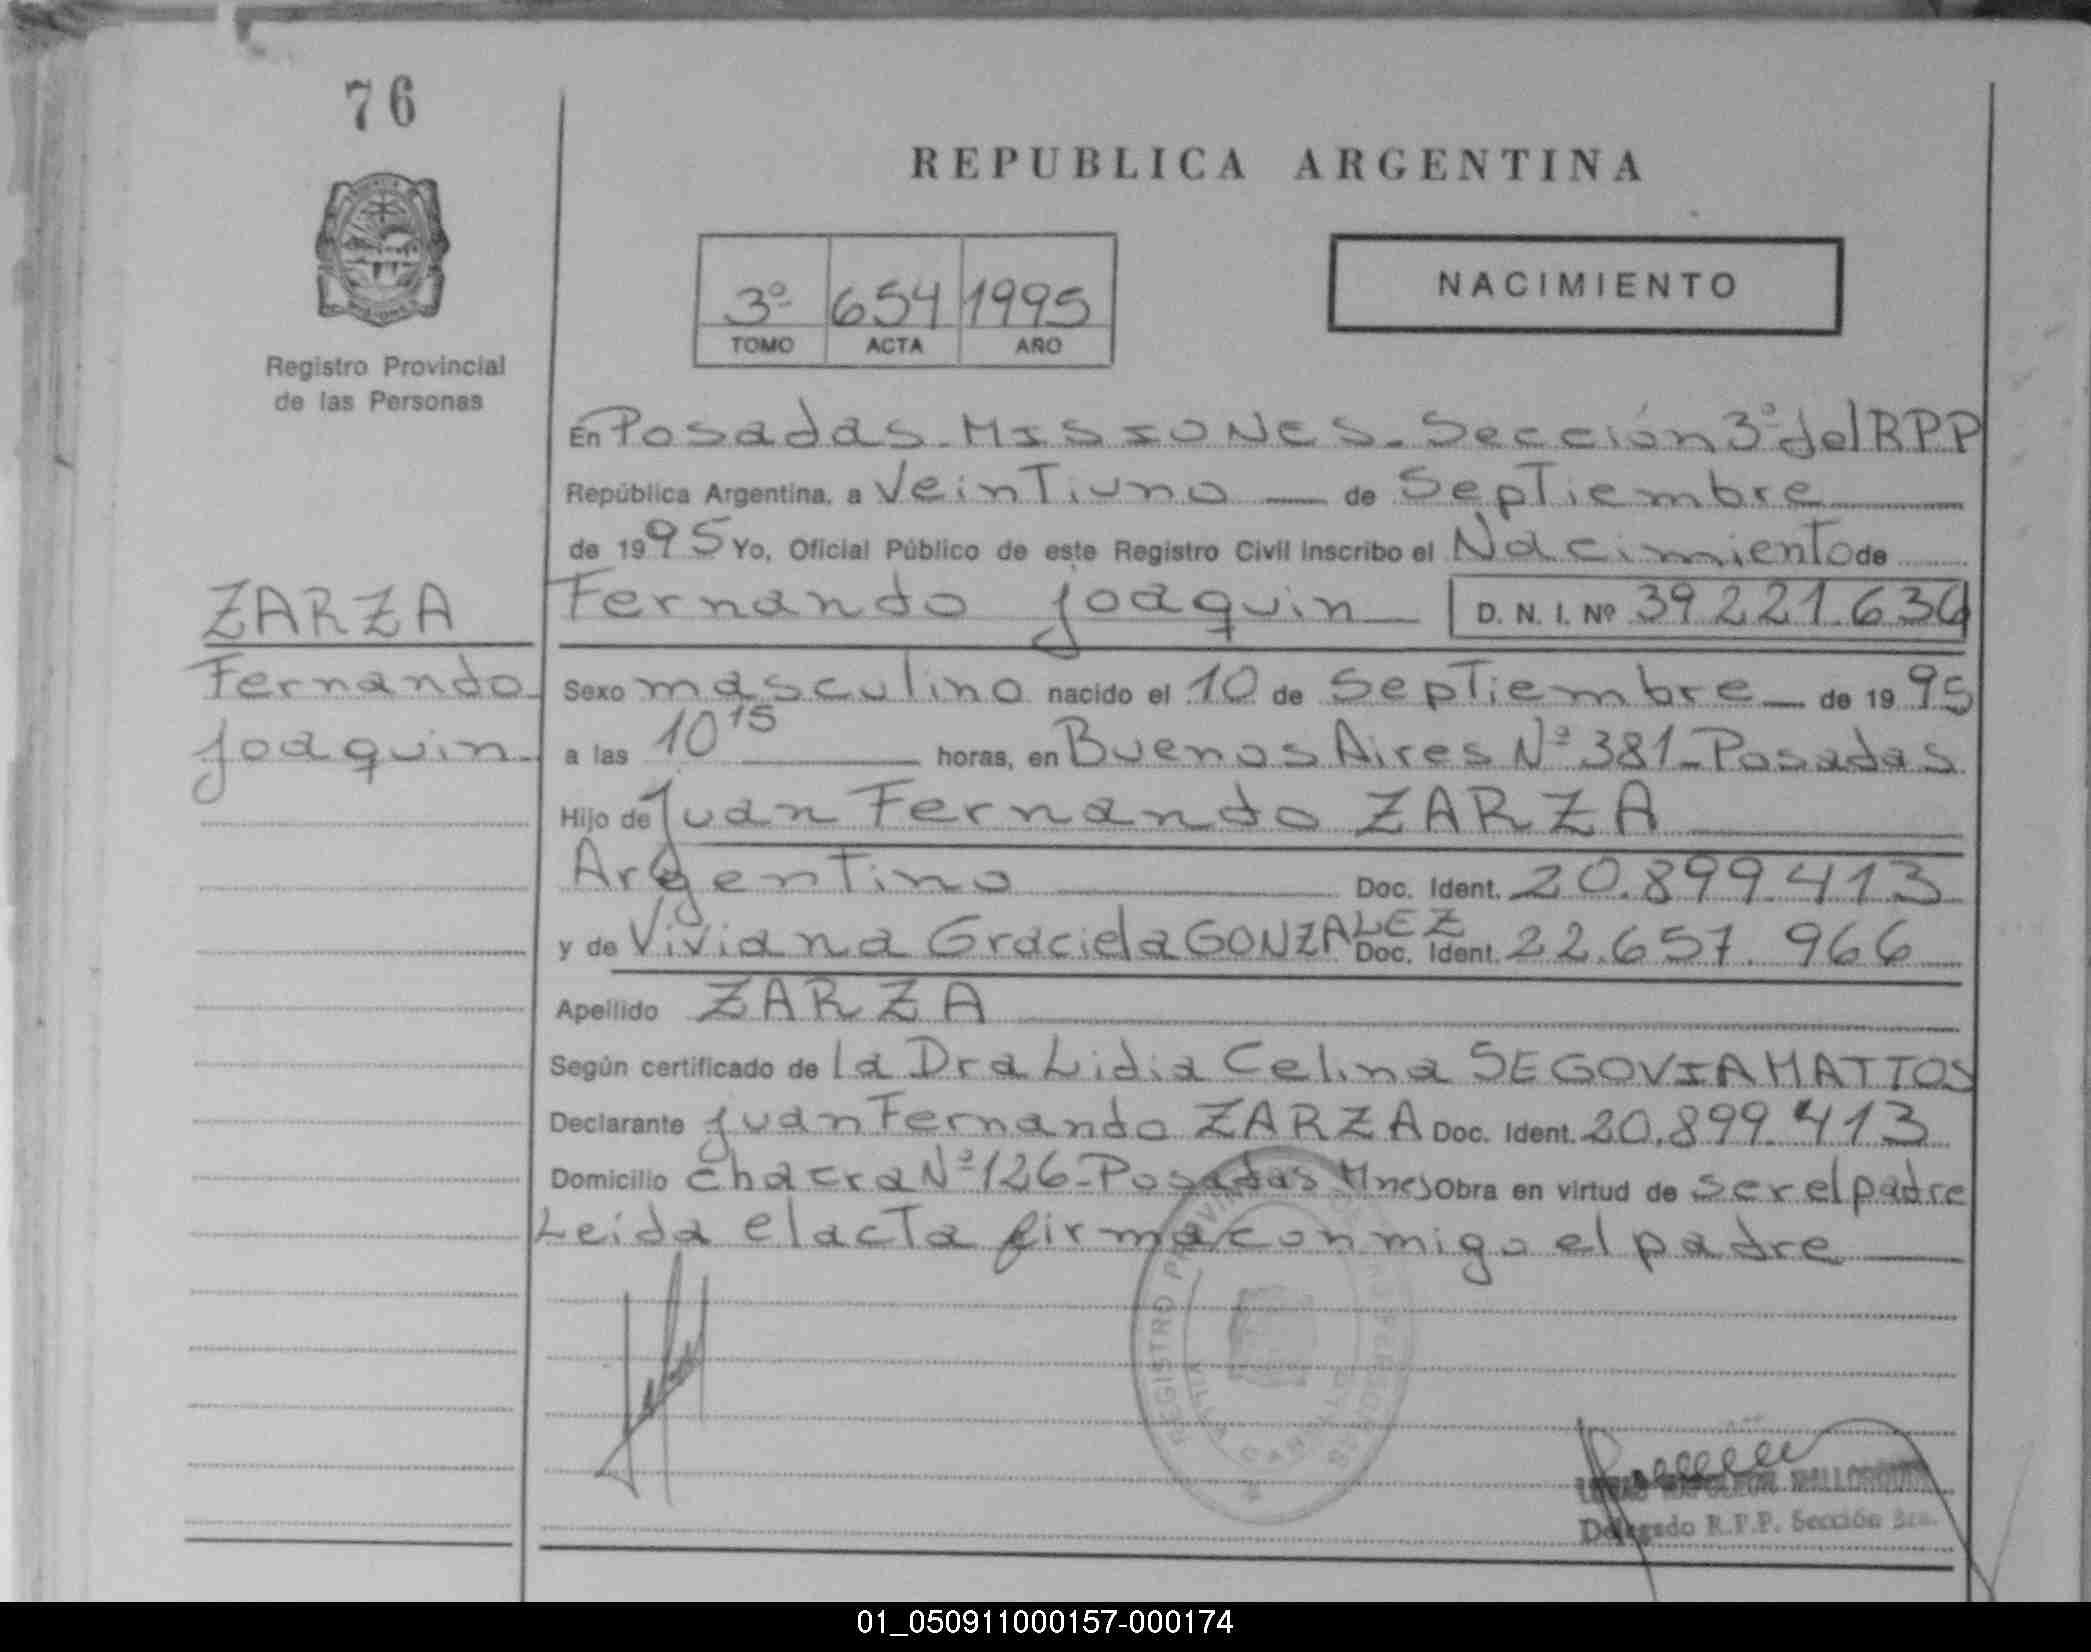 76
REPUBLICA ARGENTINA
3º 654 1995
TOMO ACTA AÑO
NACIMIENTO
Registro Provincial
de las Personas
En Posadas - Misiones. Sección 3º del RPP
República Argentina, a Veintiuno de Septiembre
de 1995 Yo, Oficial Público de este Registro Civil inscribo el Nacimiento de
ZARZA
Fernando
Joaquin
Fernando Joaquin D. N. I. Nº 39.221.636
Sexo masculino nacido el 10 de Septiembre de 1995
a las 10 15 horas, en Buenos Aires Nº 381 - Posadas
Hijo de Juan Fernando ZARZA
Argentino Doc. Ident. 20.899.413
y de Viviana Graciela GONZALEZ Doc. Ident. 22.657.966
Apellido ZARZA
Según certificado de la Dra Lidia Celina SEGOVIA MATTOS
Declarante Juan Fernando ZARZA Doc. Ident. 20.899.413
Domicilio Chacra Nº 126 - Posadas Mnes Obra en virtud de ser el padre
Leida el acta firma conmigo el padre
REGISTRO
Delegado R.P.P. Sección 3ra.
01_050911000157-000174